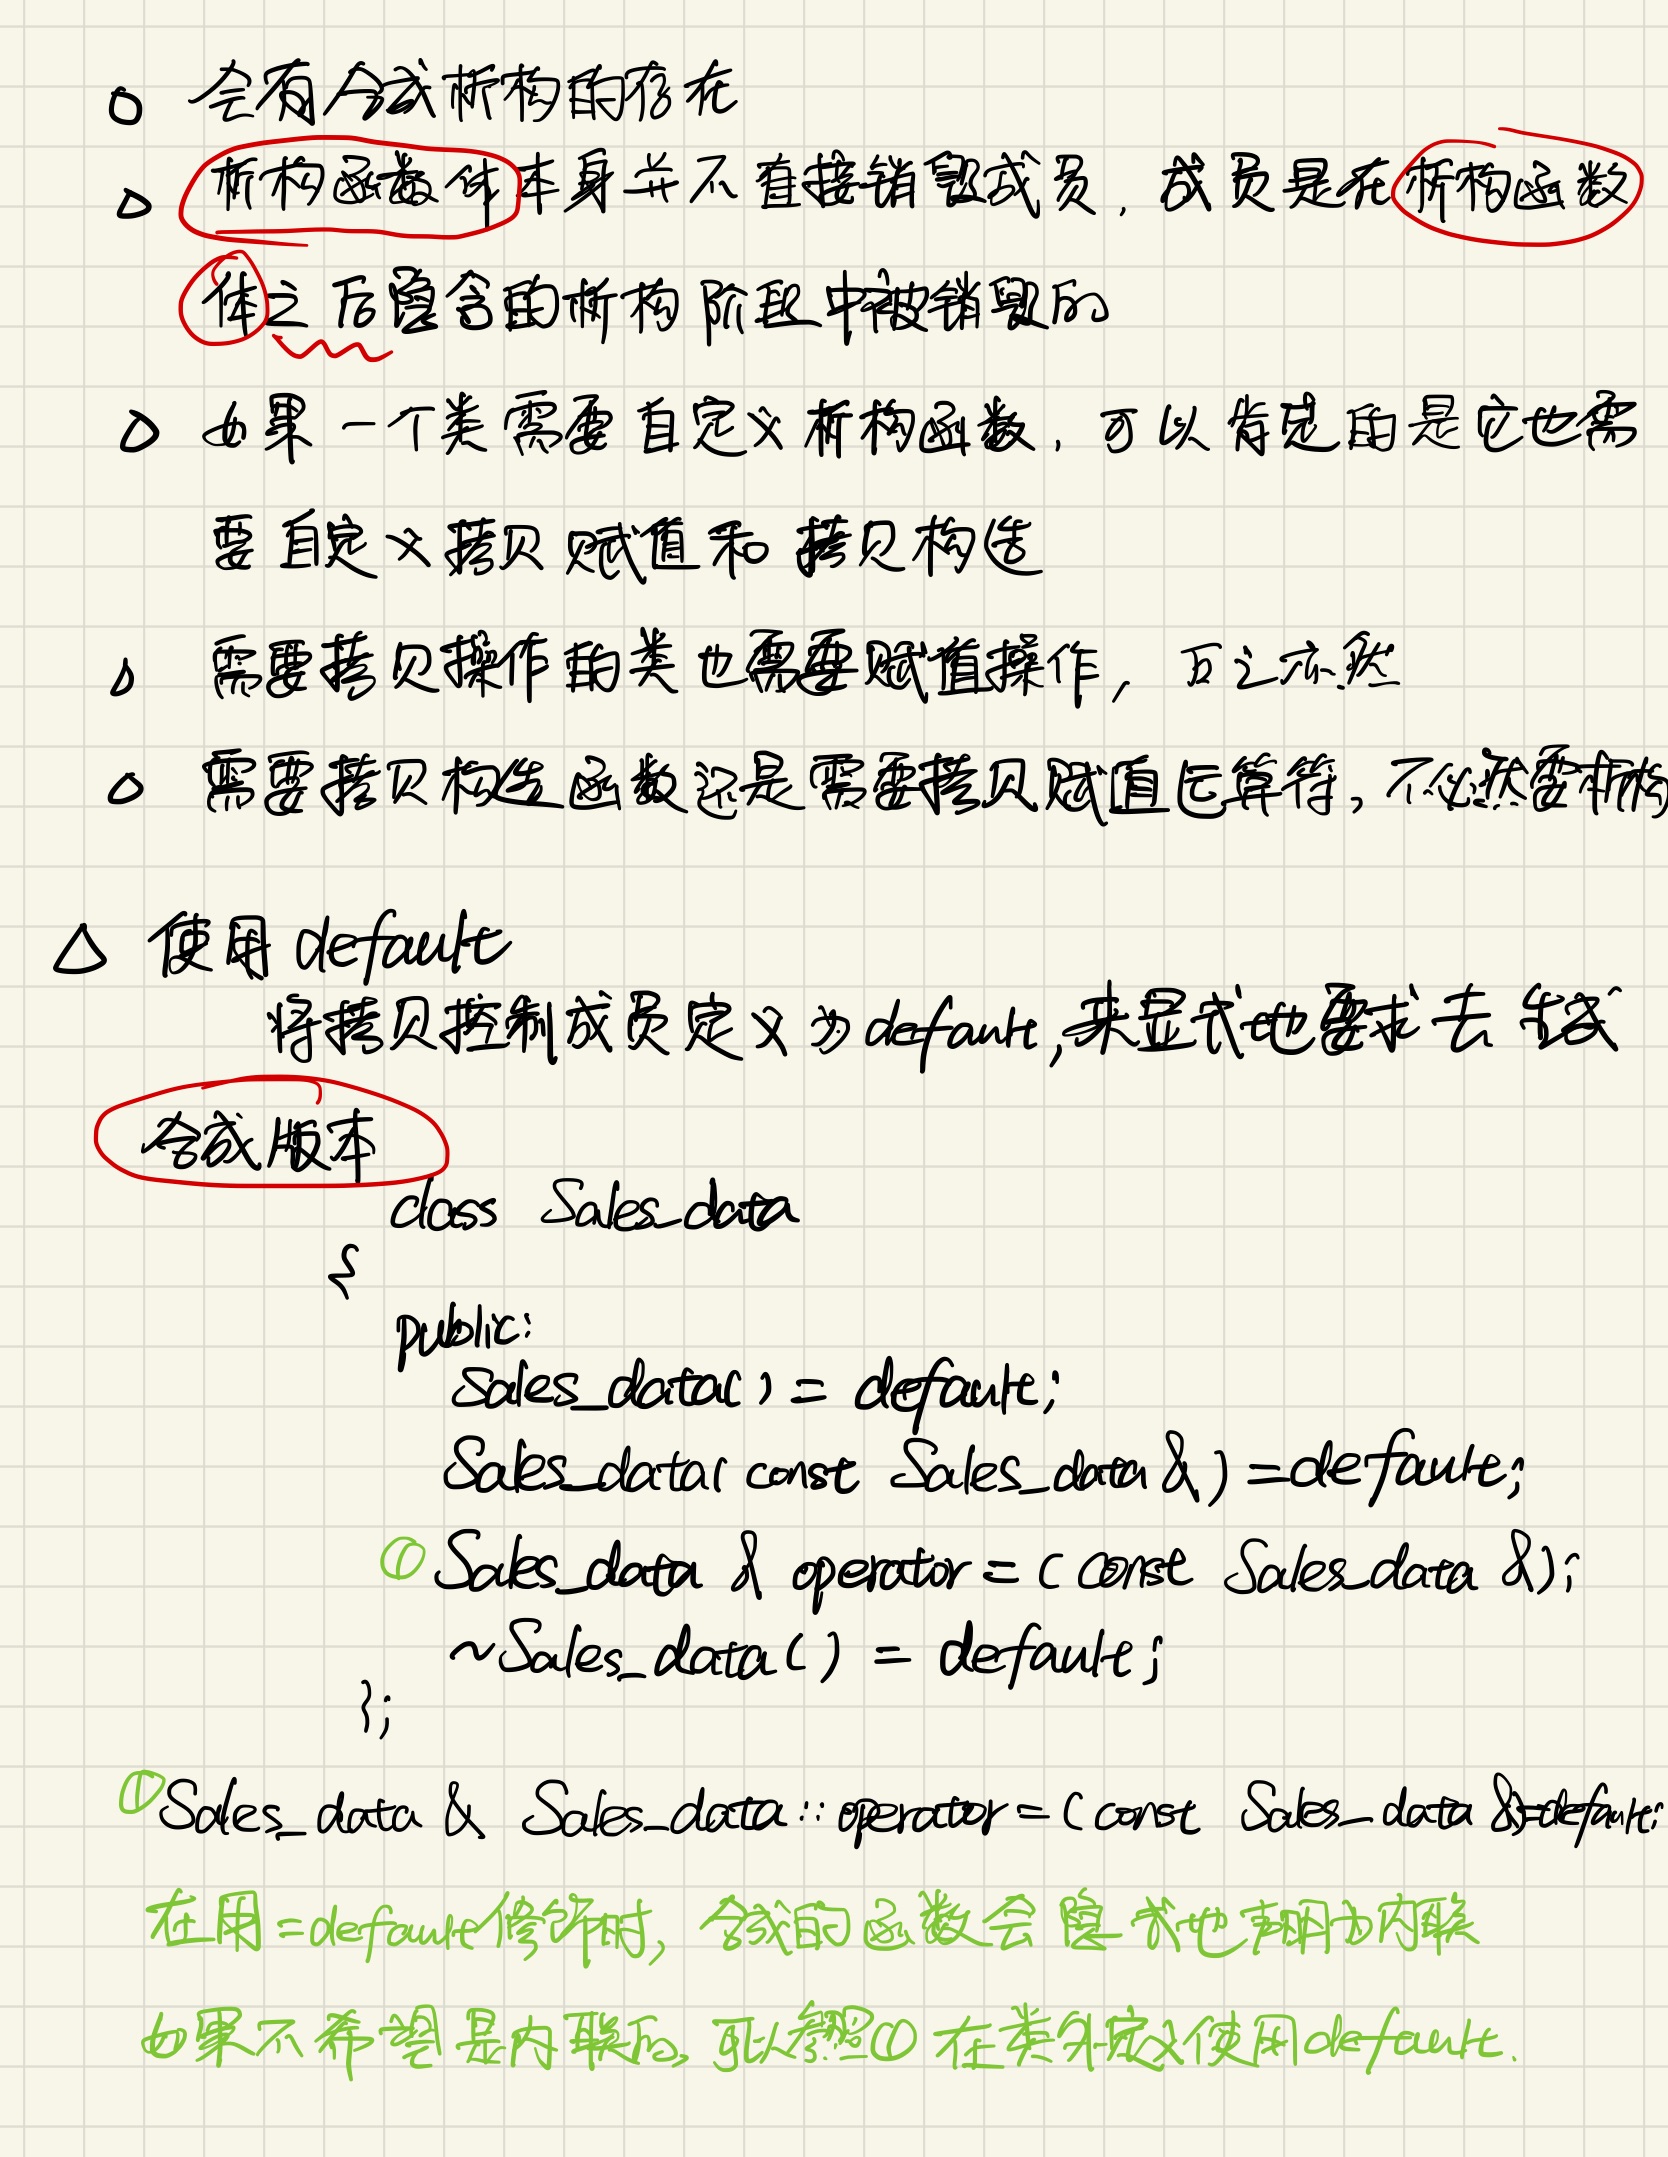 会有合成析构的存在
析构函数体本身并不直接销毁成员,成员是在析构函数
体之后隐含的析构阶段中被销毁的
如果一个类需要自定义析构函数,可以肯定的是它也需
要自定义拷贝赋值和拷贝构造
需要拷贝操作的类也需要赋值操作,反之亦然
需要拷贝构造函数还是需要拷贝赋值运算符,不必然要析构
△ 使用default
将拷贝控制成员定义为default,来显式地要求去生成
合成版本
class Sales_data
{
public:
Sales_data() = default;
Sales_data(const Sales_data &) =default;
① Sales_data & operator=(const Sales_data &);
~Sales_data() = default;
};
① Sales_data & Sales_data::operator=(const Sales_data &)=default;
在用=default修饰时,合成的函数会隐式地声明为内联
如果不希望是内联的,可以参照① 在类外定义使用default.